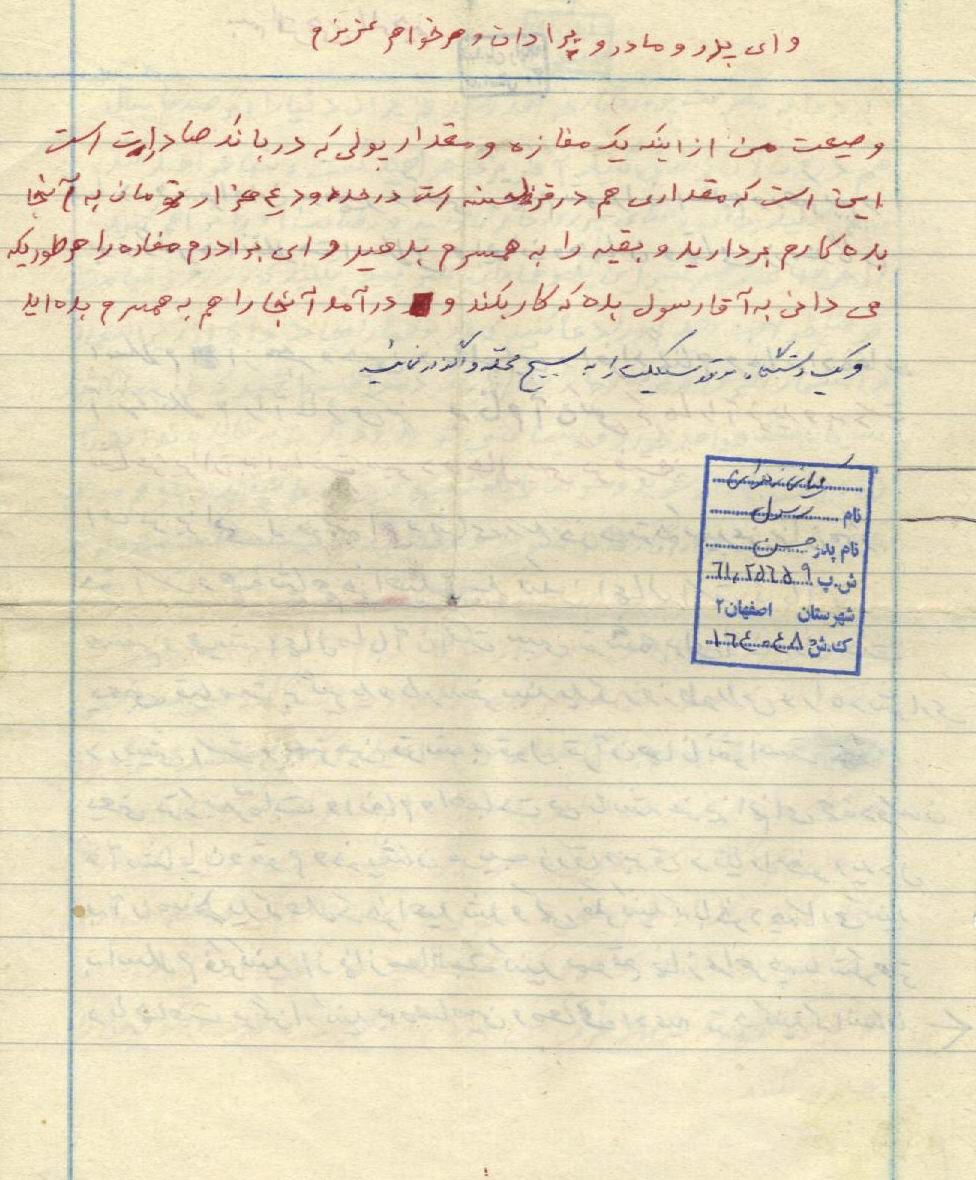 و ای پدر و مادر و برادران و خواهر عزیزم
وصیعت من از اینکه یک مغازه و مقدار پولی که در بانک صادرات است
این است که مقداری هم در قرض‌الحسنه است در حدود ٤ هزار تومان به آنجا
بده کارم بردارید و بقیه را به همسرم بدهید و ای برادرم مغازه را هر طوریکه
می دانی به آقا رسول بده که کار بکند و درآمد آنجا را هم به همسرم بده اید
و یک دستگاه موتور سیکلت را به بسیج محله واگذار نمائید
نام رسول
نام پدر حسن
ش.پ
شهرستان اصفهان ۲
ک.ش ١٦٤٠٤٨